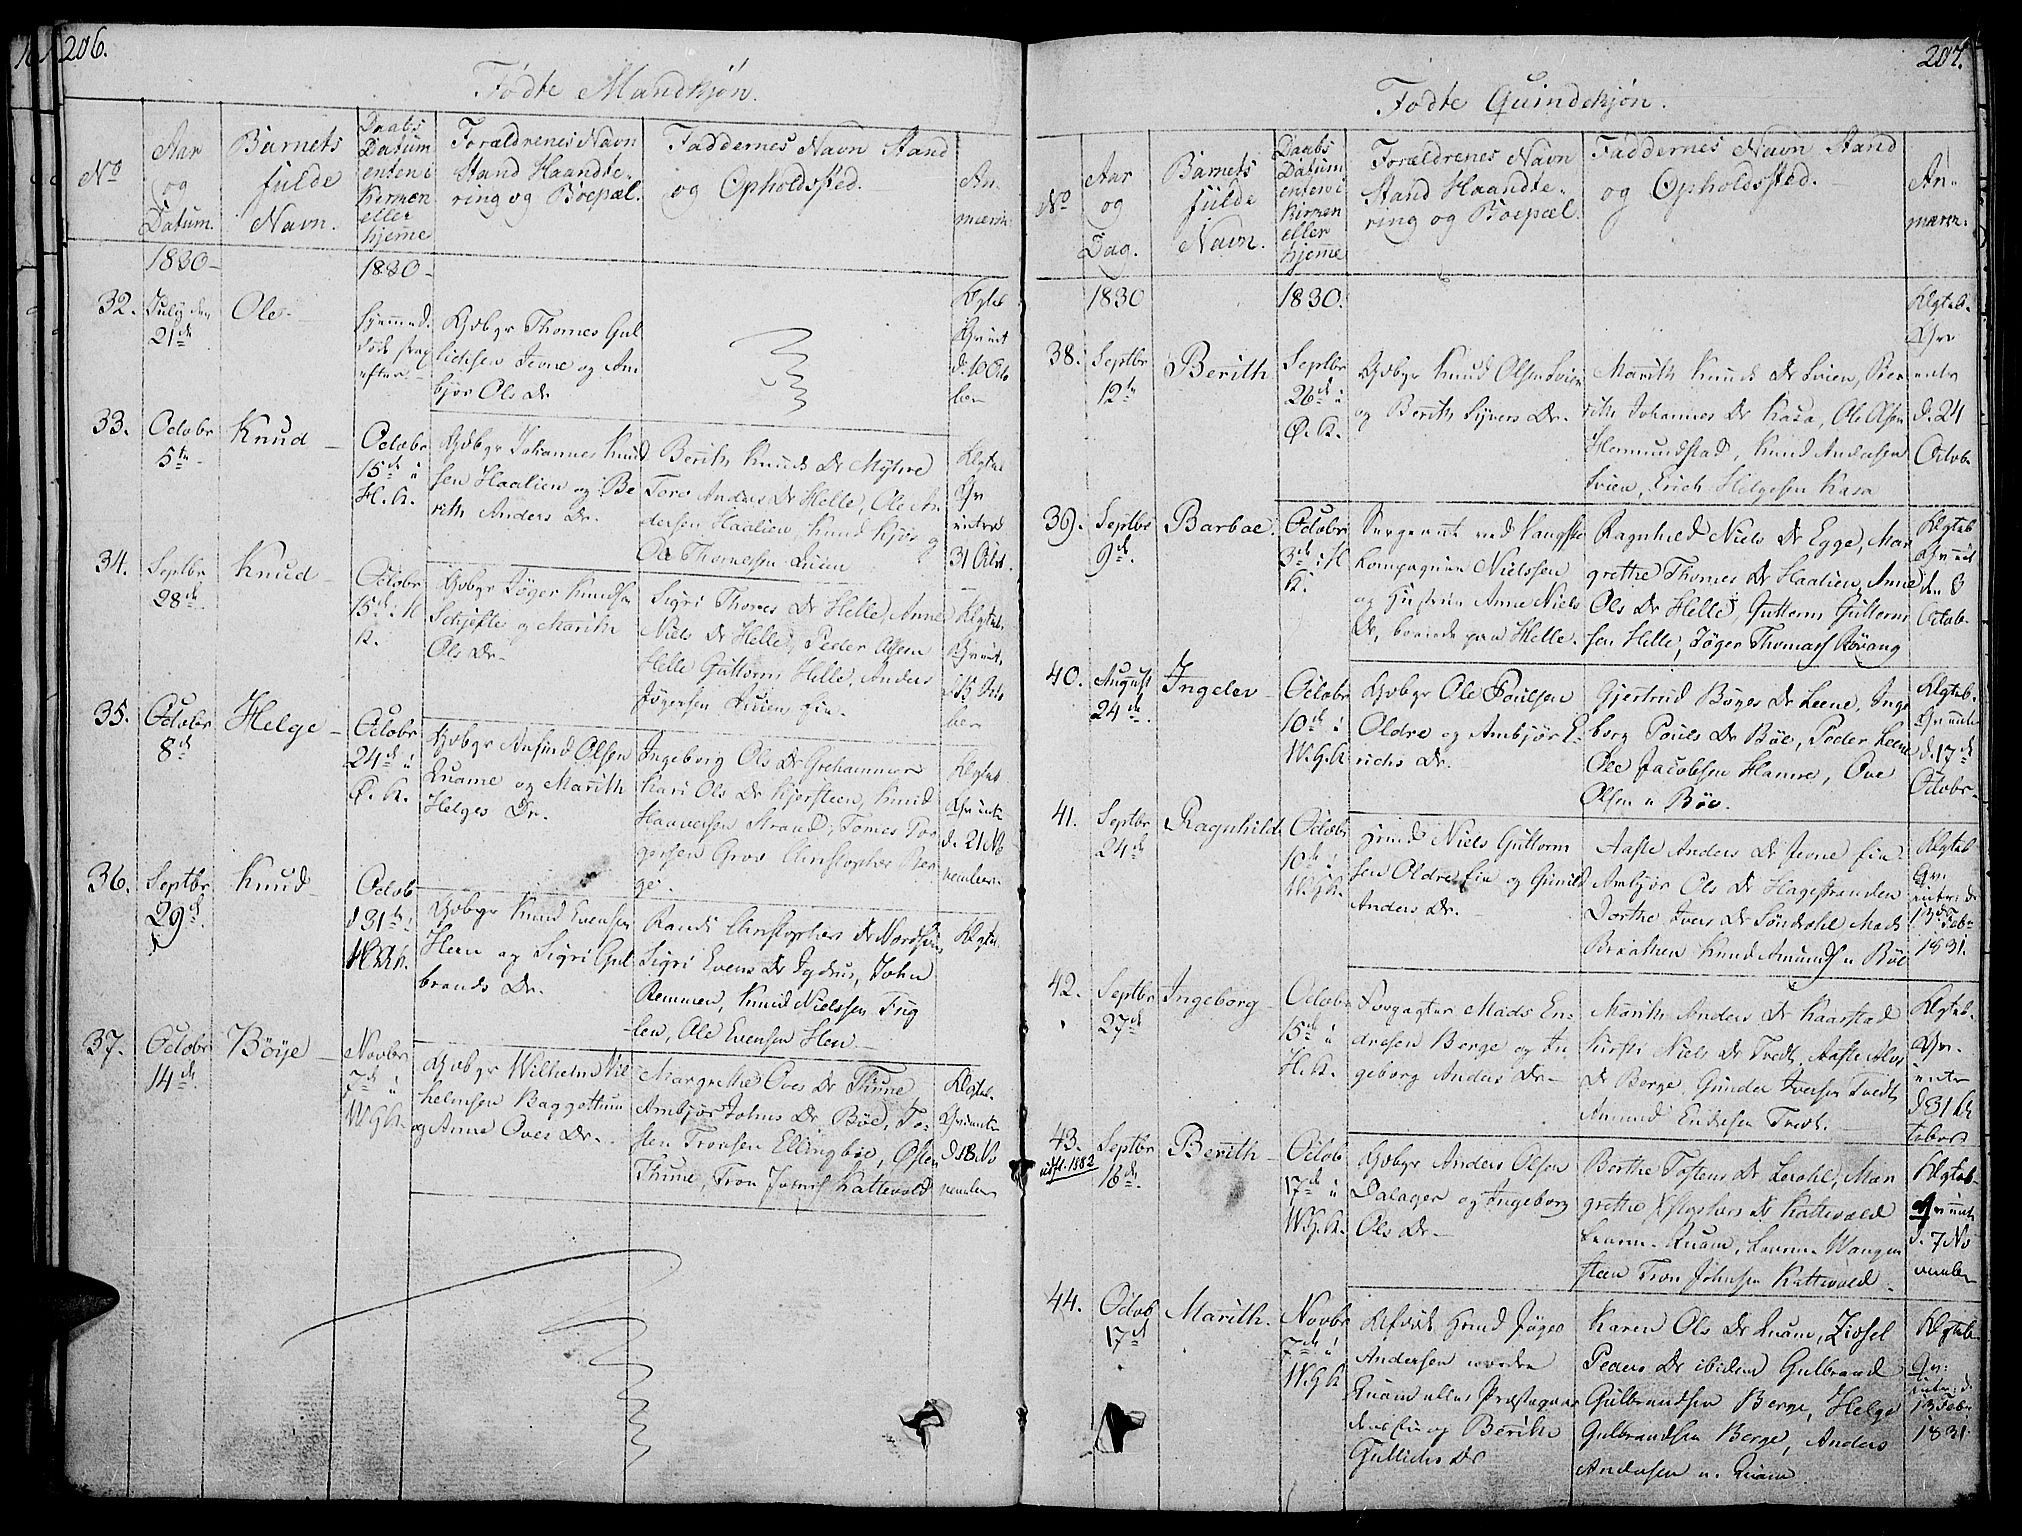 206.
Fødte Mandkjøn.
No
Aar
og
Datum.
Barnets
fulde
Navn.
Daabs
Datum
enten i
Kirken
eller
hjeme
Forældrenes Navn
Stand Haandte-
ring og Boepæl.
Faddernes Navn Stand
og Opholdssted.
An-
mærk
1830-
1830-
32.
July den
21de
Ole-
hjemmed.
døde strax
efter-
Gdbgr Thomes Gul
lichsen Jevne og Am
bjør Ols Dr
33.
Octobr
5te
Knud-
Octobr
15de i
H. K.
Gdbgr Johannes Knud
sen Haalien og Be
rith Anders Dr.
Berith Knuds Dr Myhre
Tore Anders Dr Helle, Ole An-
dersen Haalien, Knud
Ole Thomessen
34.
Septbr
28de
Knud-
Octobr
15de i H
K.
Gdbgr Jøger Knudsen
Schjefte og Marith
Ols Dr-
Sigri Thores Dr Helle, Anne
Niels Dr Helle, Peder Olsen
Helle Guttorm Helle, Anders
Jøgersen
35.
Octobr
8de
Helge-
Octobr
24de i
Ø. K.
Gdbgr Anfind Olsen
Quame og Marith
Helges Dr.
Ingeborg Ols Dr Grehammer
Kari Ols Dr Kjersteen, Knud
Haaversen Strand, Tomes Tor
gersen Grov Christopher Ber
ge.
d. 21 No
vember.
36.
Septbr
29d.
Knud
Octob
d 31te i
Gdbgr Knud Evensen
Heen og Sigri Gul
brands Dr.
Randi Christophers Dr
Sigri Evens Dr Jgdrus, John
Remmen, Knud Nielssen Trig
len, Ole Evensen Hen-
37.
Octobr
14de
Bøye-
Novbr
7de i
W.G.K.
Gdbgr Wilhelm Vil
helmsen Baggettun
og Anne Oves Dr.
Margrethe Oves Dr Thune
Ambjør Johns Dr Bøe, To-
sten Tronsen Ellingbøe, Østen
Thune, Tron Kattevold
d 18 No
vember
207.
Fødte Quindekjøn.
No
Aar
og
Dag.
Barnets
fulde
Navn.
Daabs
Datum
enten i
Kirken
eller
hjeme
Forældrenes Navn
Stand Haandte-
ring og Boepæl.
Faddernes Navn Stand
og Opholdssted.-
An-
mærk.
1830
1830.
38.
Septbr
12te
Berith
Septbr
26de i
Ø. K.
Gdbgr Knud Olsen Svien
og Berith Syvers Dr.
Marith Knuds Dr Svien, Be
rith Johannes Dr Kasa, Ole Olsen
Hermundstad, Knud Andersen
Svien, Erich Helgesen Kasa
d. 24
Octob.
39.
Septbr
9de.
Barboe.
Octobr
3de i H
K.
Sergeant ved Vangske
Kompagnie Nielssen
og Hustrue Anne Niels
Dr, boende paa Helle.
Ragnhild Niels Dr Egge, Mar
grethe Thomes Dr Haalien, Anne
Ols Dr Helle, Guttorm Guttorm
sen Helle, Jøger Thomass Røvang
40.
August
24de
Ingelev-
Octobr
10de i
W.G.K.
Gdbgr Ole Poulsen
Oldre og Ambjør E-
richs Dr.
Gjertrud Bøyes Dr Leene, Inge
borg Pouls Dr Bøe, Peder Leene
Ole Jacobsen Hamre, Ove
Olsen u Bøe.
d. 17de
Octobr-
41.
Septbr
24de
Ragnhild.
Octobr
10de i
W.G.K.
Huusmd Niels Guttorm
sen Oldre Eie og Gunild
Anders Dr.-
Aaste Anders Dr Jevne Eie
Ambjør Ols Dr Hagestranden
Dorthe Ivers Dr Søndrohl Mads
Braathen Knud Amunds u Bøe
13de Feb-
1831.
42.
Septbr
27de
Ingeborg-
Octobr
15de i
H. K.
Forpagter Mads En-
dresen Berge og In
geborg Anders Dr-
Marith Anders Dr Kaarstad
Kirsti Niels Dr Tvedt, Aaste Alvs
Dr Berge, Gunder Iversen Tvedt,
Amund Endresen Tvedt.-
d 31 Ok
tober
43.
udfl. 1882
Septbr
18de.
Berith-
Octob
17de i
W.G.K.
Gdbgr Anders Olsen
Dalager og Ingeborg
Ols Dr-
Berthe Tostens Dr Lerohl, Mar
grethe Christophers Dr Kattevold
Quam, Wangen
steen Tron Johnsen Kattevold.-
d. 7 No
vember
44.
Octob
17de
Marith.
Novbr
7de i
W.G.K
Huusmd Jøger
Andersen nordre
Quam
og Berith
Gullichs Dr
Karen Ols Dr Quam, Zidsel
Peders Dr ibidem Gulbrand
Gulbrandsen Berge, Helge
Gulbrandsen Berge, Anders
Andersen u. Quam.
13 Feb-
1831